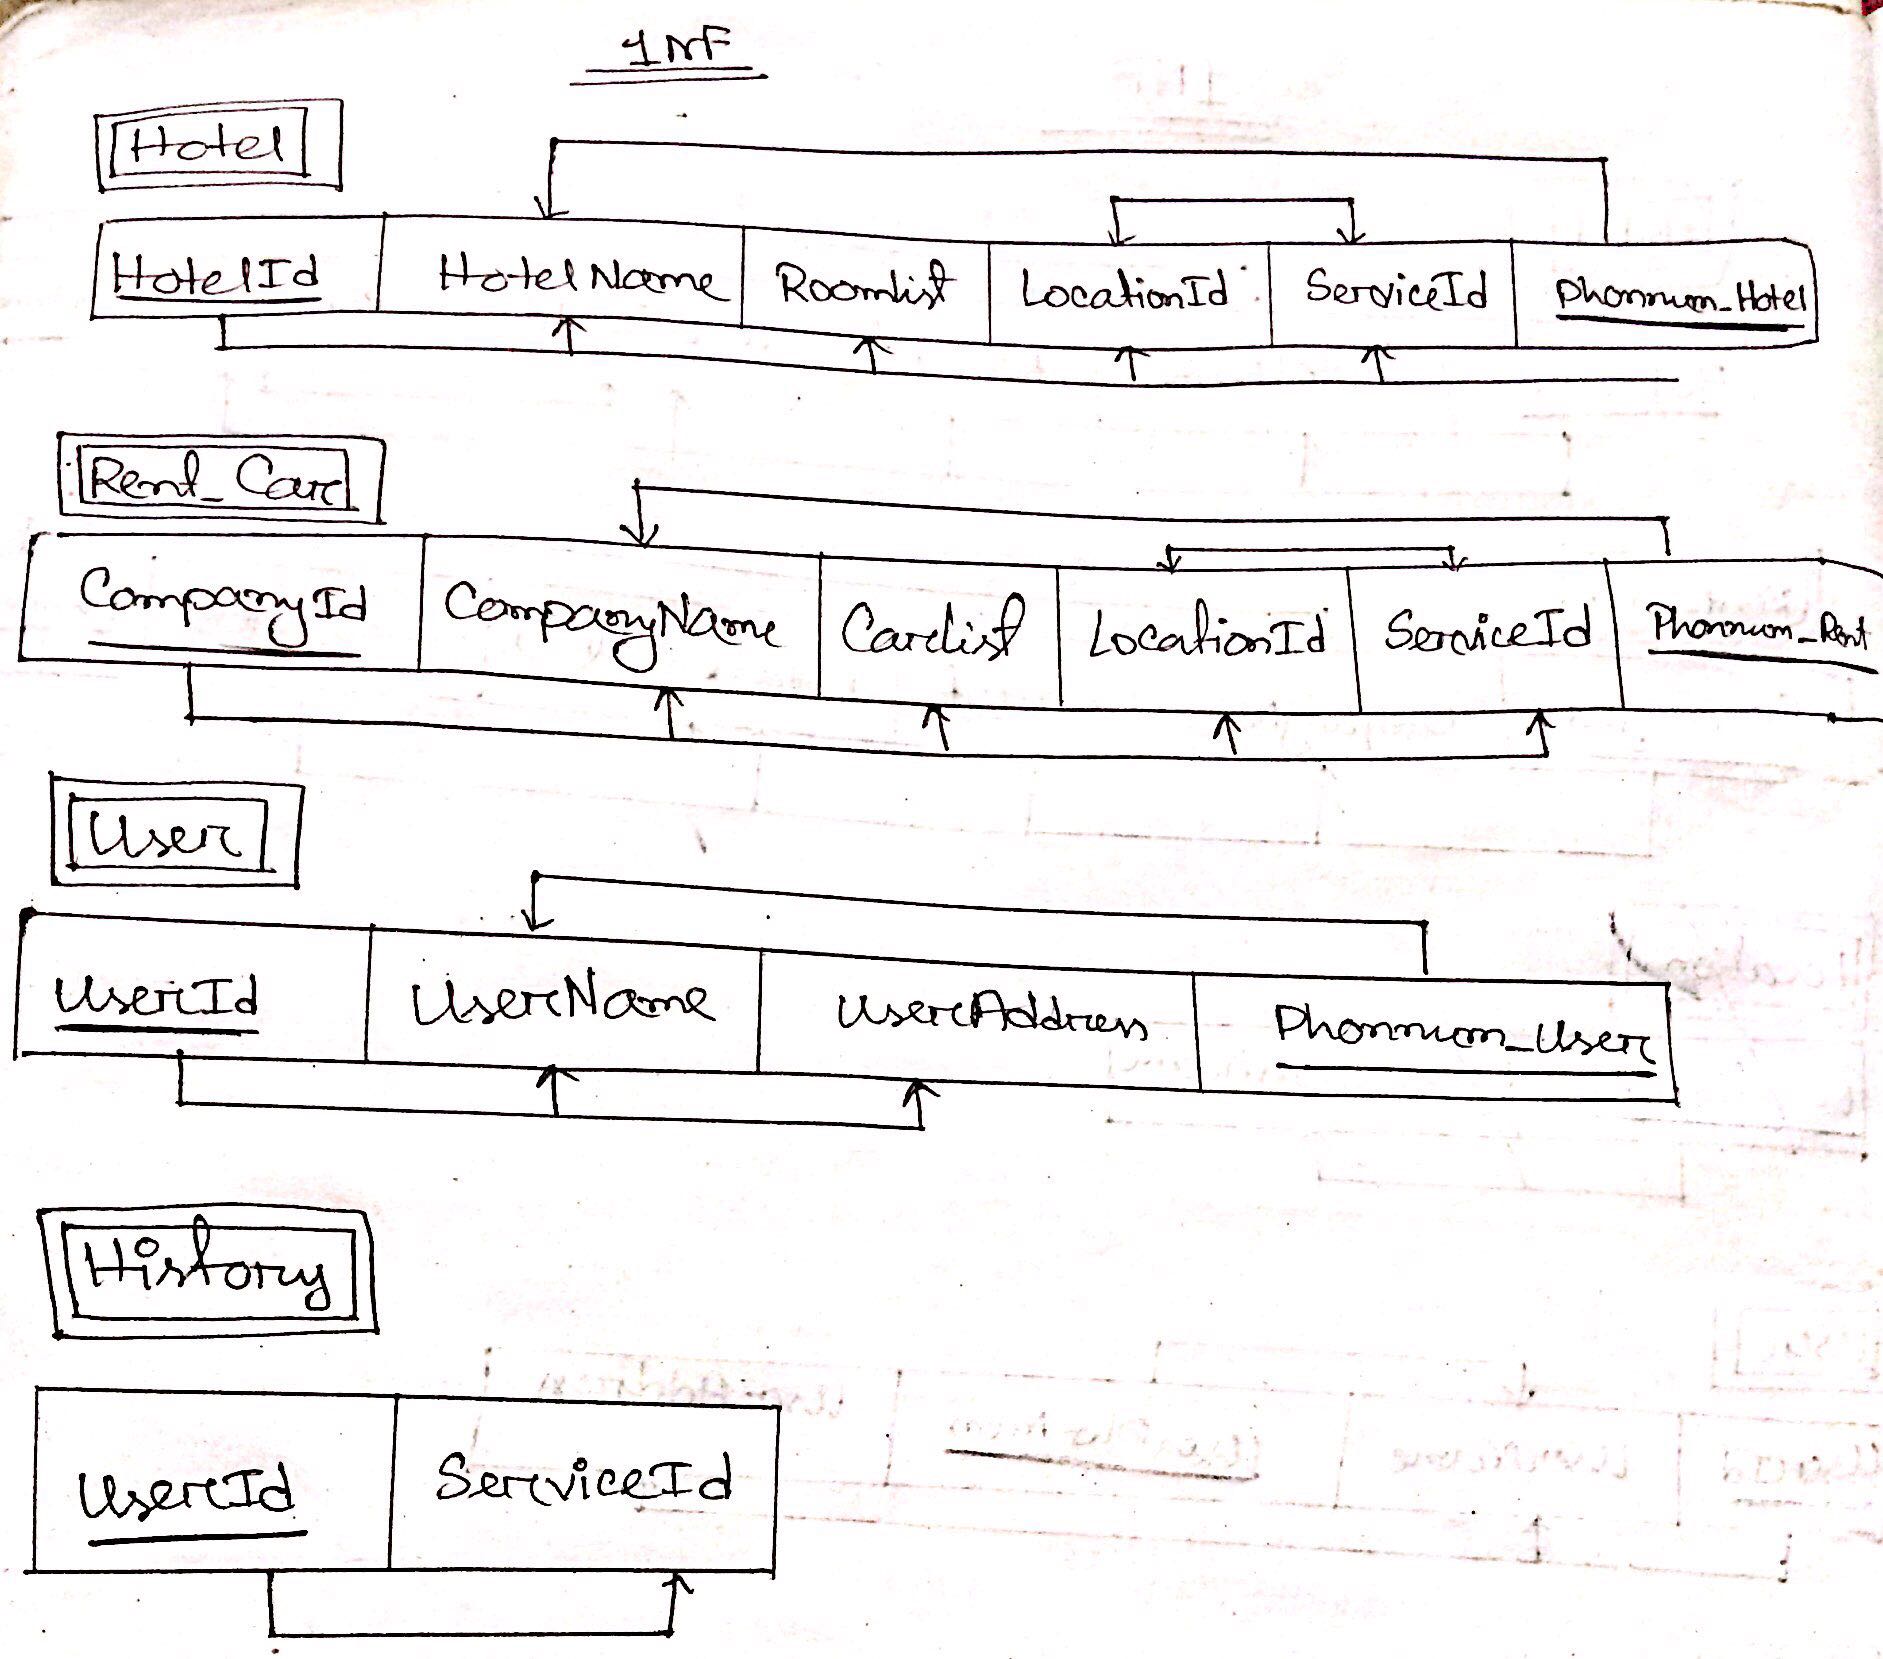 1NF
Hotel
HotelId HotelName Roomlist LocationId ServiceId phonnum_Hotel
Rent_Car
CompanyId CompanyName Carlist LocationId ServiceId Phonnum_Rent
User
UserId UserName UserAddress Phonnum_User
History
UserId ServiceId